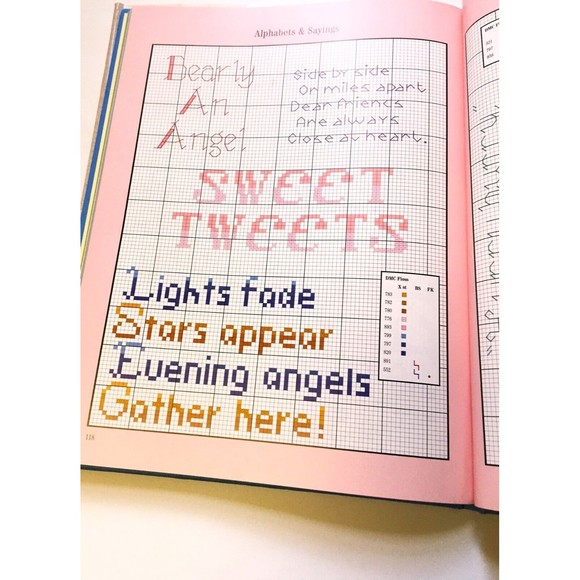 Alphabets & Sayings
Dearly
An
Angel
Side by side
Or miles apart
Dear friends
Are always
Close at heart.
SWEET
TWEETS
Lights fade
Stars appear
Evening angels
Gather here!
DMC Floss
X st BS FX
783
782
780
776
893
799
797
820
891
552
118